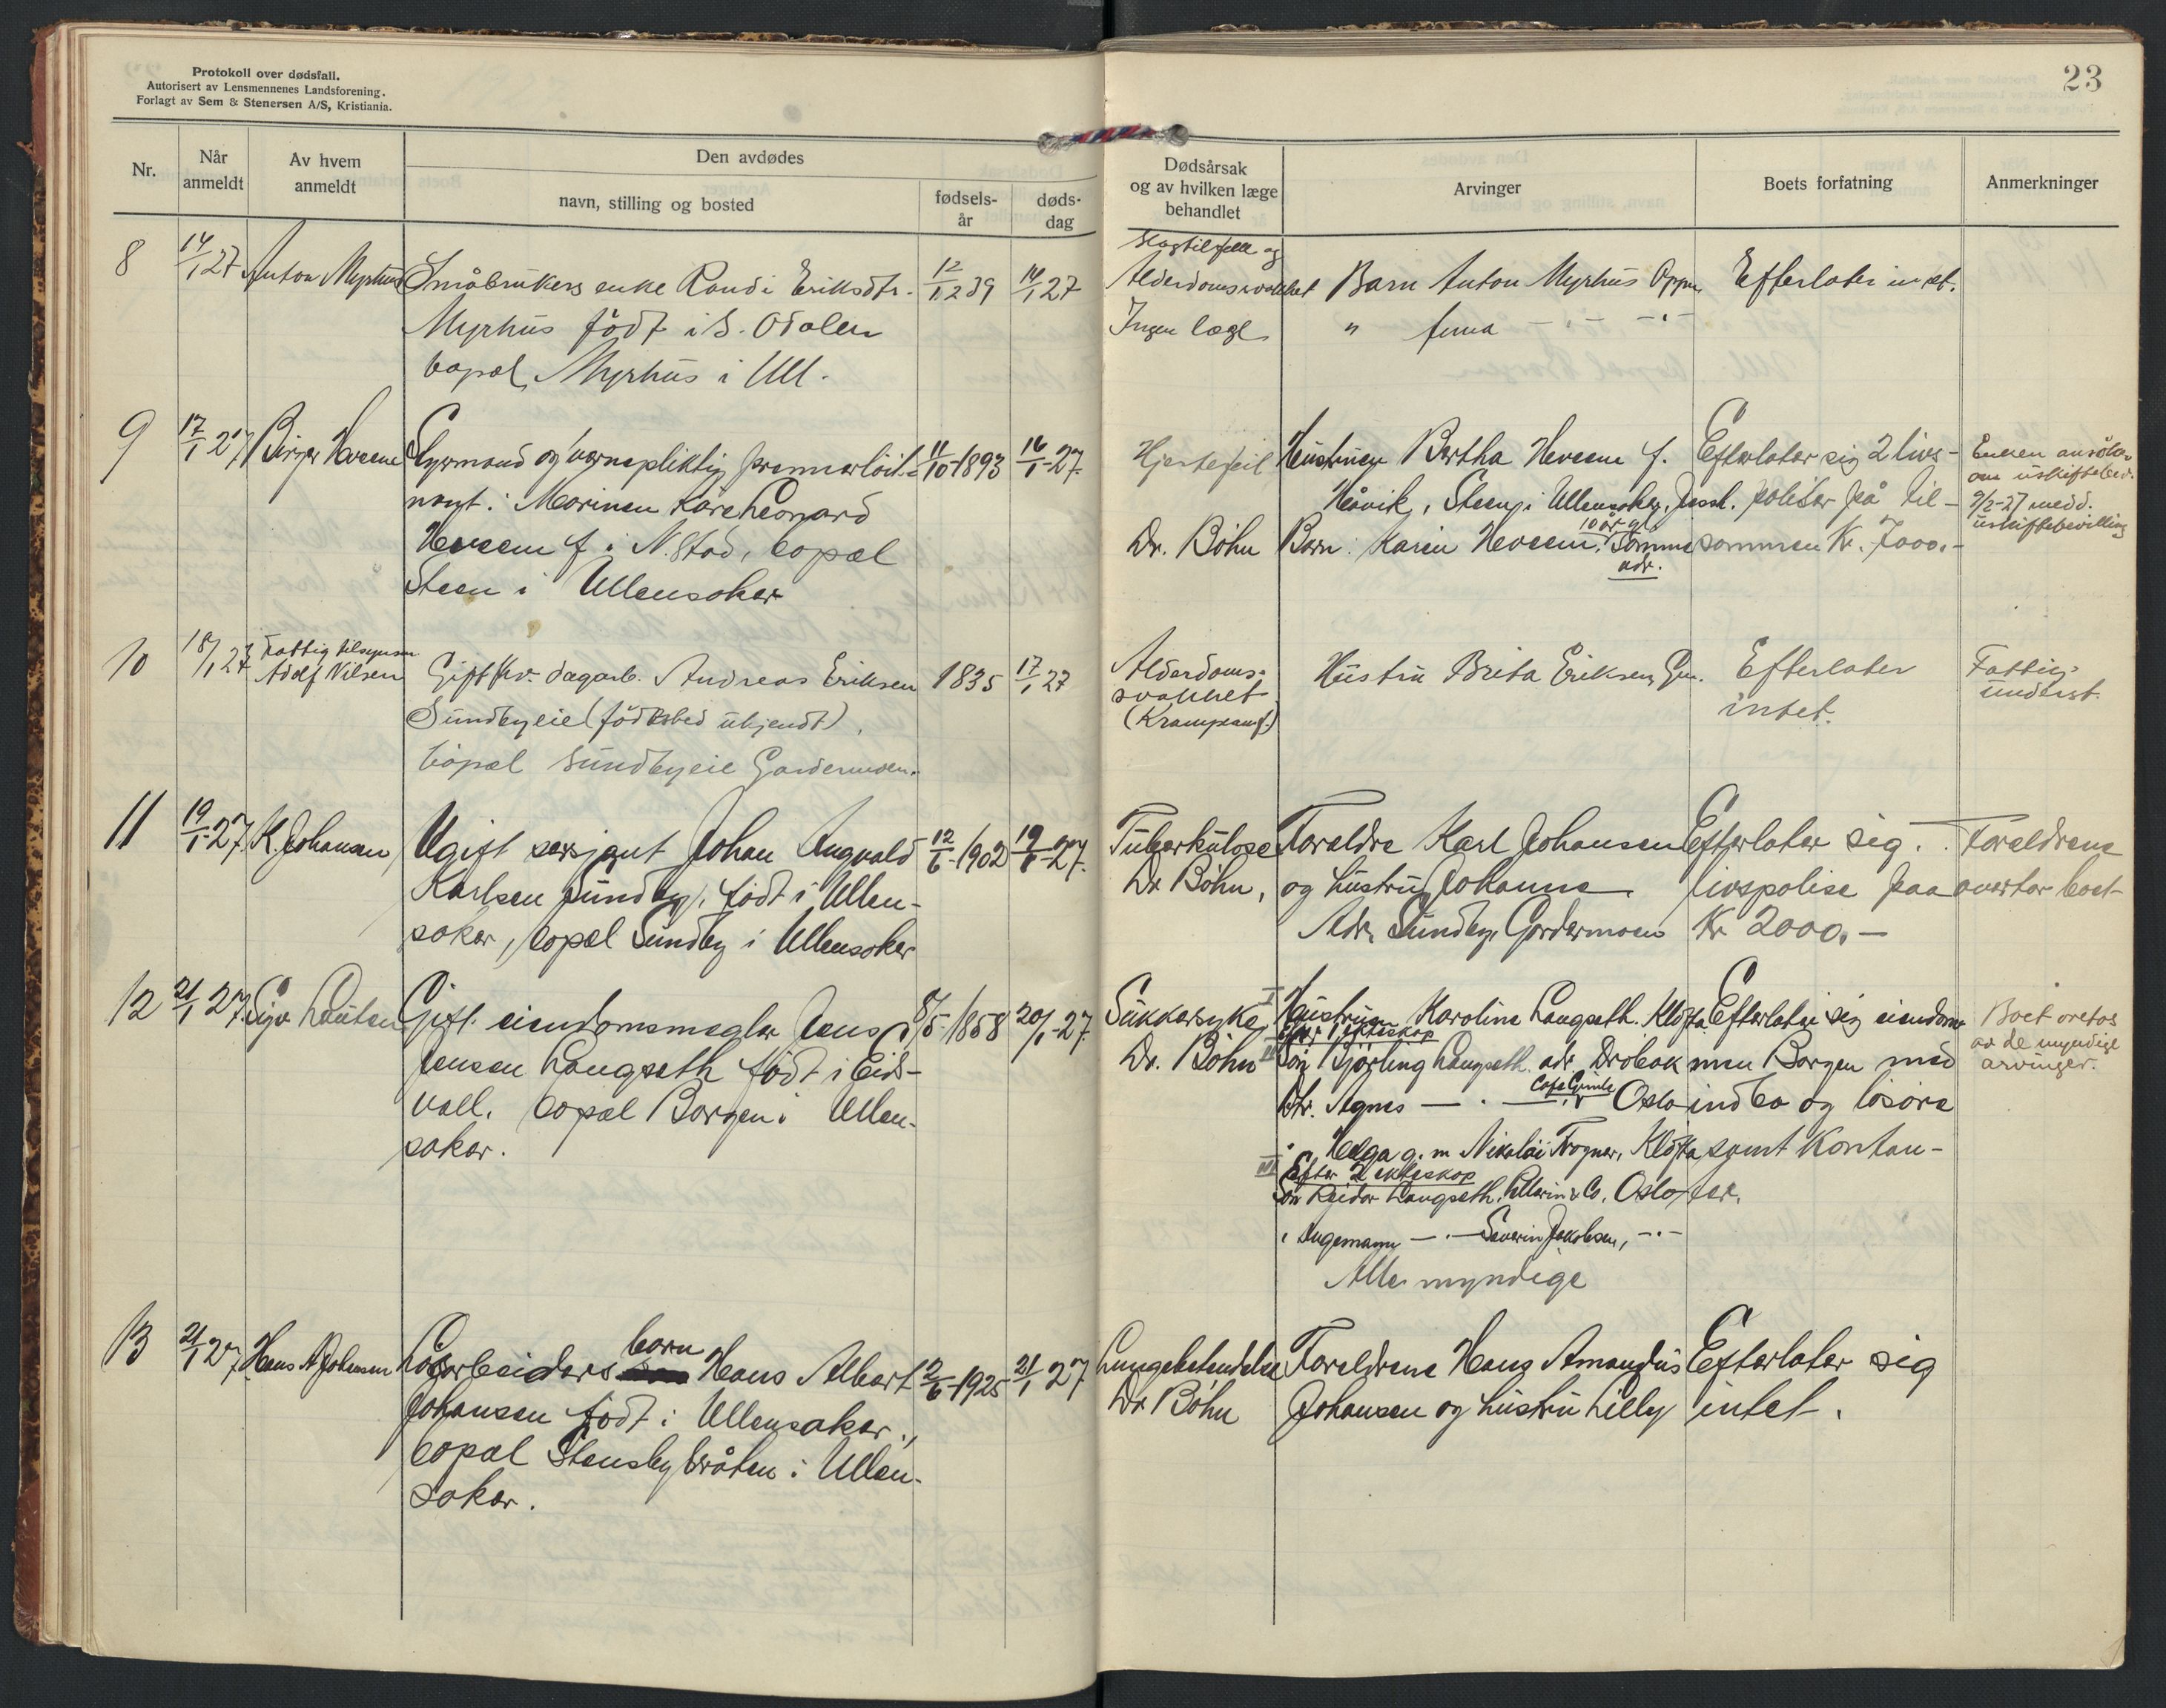 Protokoll over dødsfall.
Autorisert av Lensmennenes Landsforening.
Forlagt av Sem & Stenersen A/S, Kristiania.
23
Nr.
Når anmeldt
Av hvem anmeldt
Den avdødes
navn, stilling og bosted
fødsels-år
døds-dag
Dødsårsak og av hvilken læge behandlet
Arvinger
Boets forfatning
Anmerkninger
8 14/1 27 Anton Myrhus Småbrukers enke Randi Eriksdtr. 14/1 27
Myrhus født i S. Odalen
bopæl Myrhus i Ull.
Slagtilfelle og
Alderdomssvakhet Barn Anton Myrhus Efterlater intet.
Ingen læge "
9 17/1 27 Birger Heveem Styrmand og vernepliktig premierløit- 11/10-1893 16/1-27.
nant i Marinen Kåre Leonard
Heveem f. i N. Stad, bopæl
Steen i Ullensaker
Hjertefeil Hustruen Bertha Heveem f. Efterlater sig 2 livs- Enken ansöker
Håvik, Steen i Ullensaker, Jessh. poliser på til- om uskiftebev.
9/2-27 medd.
10 år gl.
Dr. Böhn Barn: Karin Heveem. Samme sammen Kr. 7000.- uskiftebevilling
adr.
10 18/1 27 Fattigtilsynsm. Adolf Nilsen Gift fhv. dagarb. Andreas Eriksen 1835 17/1 27
Sundbyeie (fødested ukjendt).
bopæl Sundbyeie Gardermoen.
Alderdoms- Hustru Brita Eriksen, Gm. Efterlater Fattig-
svakhet intet. underst.
(Krampeanf.)
11 19/1-27. K. Johansen, Ugift sersjant Johan Ingvald 12/6-1902 19/1-27.
Karlsen Sundby, født i Ullen-
saker, bopæl Sundby i Ullensaker
Tuberkulose Foreldre Karl Johansen Efterlater sig. Foreldrene
Dr. Böhn, og hustru Johanne. livspolise paa overtar boet
Adr. Sundby, Gardermoen Kr 2000.-
12 21/1 27. Sigv. Lauten Gift eiendomsmegler Jens 8/5-1858 20/1-27.
Jensen Langseth født i Eids-
voll. bopæl Borgen i Ullen-
saker.
Sukkersyke, I Hustruen Karoline Langseth. Kløfta. Efterlater sig eiendom- Boet overtas
Efter 1 ekteskap av de myndige
Dr. Böhn II Søn Hjörling Langseth. adr. Dröbak men Borgen med arvinger.
Dtr. Agnes -.- Oslo indbo og løsøre
" Helga g. m. Nikolai Trogner, Kløfta samt Kontan-
III Efter 2 ekteskap
Søn Reidar Langseth. Oslo ter.
" Ingemann -.- Severin Jakobsen, -.-
Alle myndige
13 21/1 27. Hans A Johansen Løsarbeiders barn Hans Albert 2/6-1925 21/1 27
Johansen født i Ullensaker.,
bopæl Stensbybråten i Ullen-
saker.
Lungebetendelse Foreldrene Hans Amandus Efterlater sig
Dr. Böhn Johansen og hustru Lilly intet.